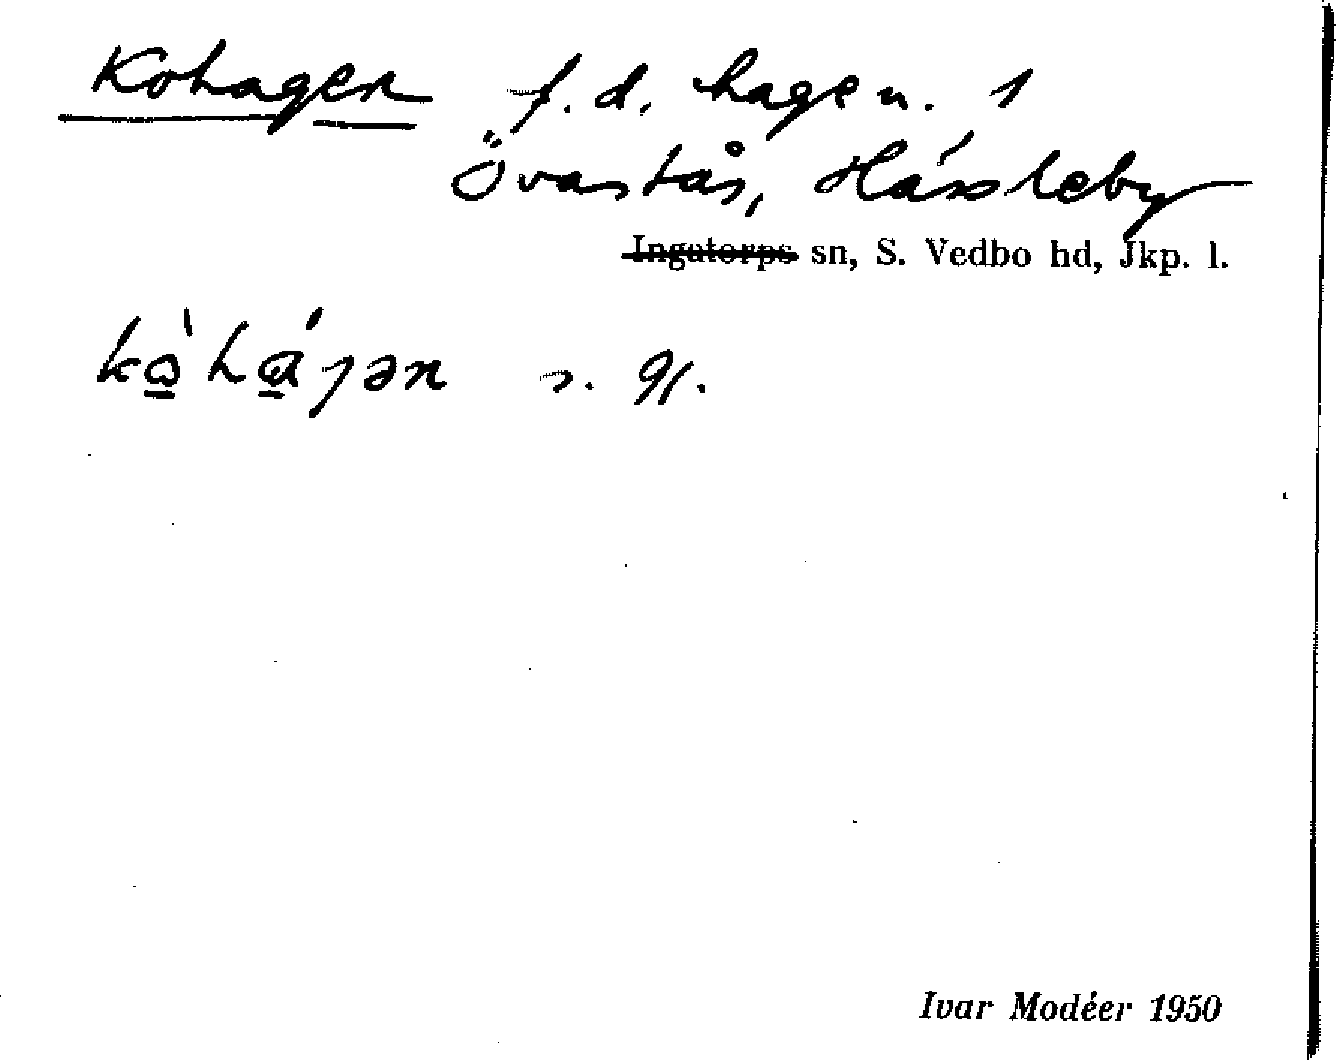 Kohagen f. d. hage n. 1
Övastås, Hässleby
Ingatorps sn, S. Vedbo hd, Jkp. l.
s. 91.
Ivar Modéer 1950